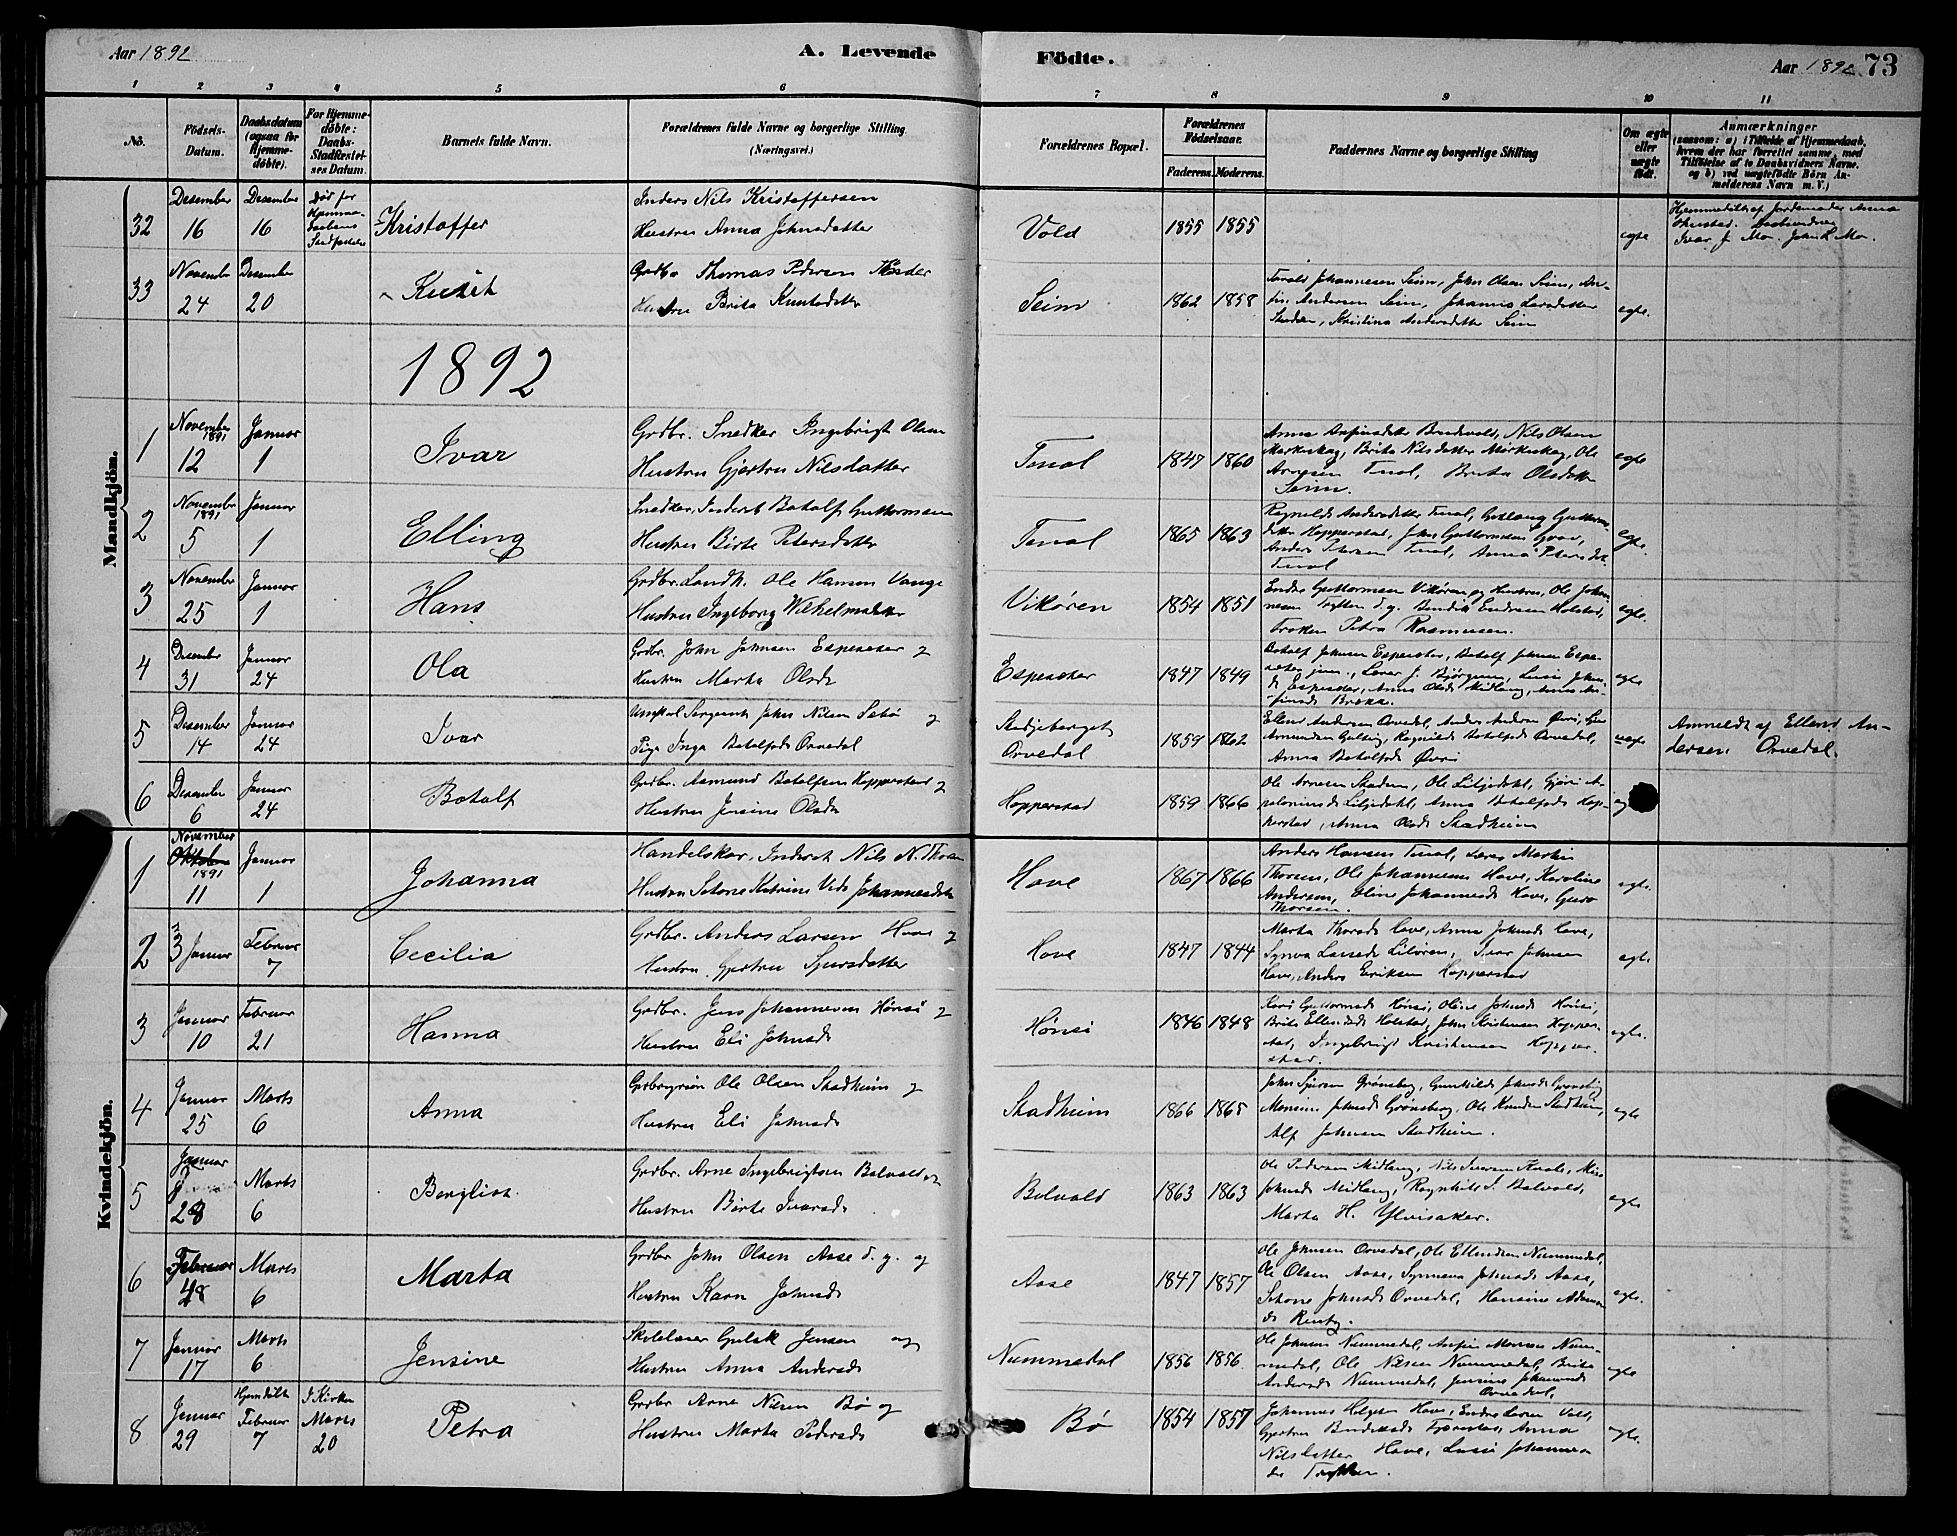 Aar 1892
A. Levende
Födte.
Aar 1892
73
1 2 3 4 5 6 7 8 9 10 11
No.
Födsels-
Datum.
Daabsdatum
(ogsaa for
Hjemme-
döbte).
For Hjemme-
döbte:
Daabs-
Stadfæstel-
ses Datum.
Barnets fulde Navn.
Forældrenes fulde Navne og borgerlige Stilling
(Næringsvei.)
Forældrenes Bopæl.
Forældrenes
Födselsaar.
Faderens. Moderens.
Faddernes Navne og borgerlige Stilling
Om ægte
eller
uægte
født.
Anmærkninger
(saasom: a) i Tilfælde af Hjemmedaab,
hvem der har forrettet samme, med
Tilföielse af to Daabsvidners Navne,
og b) ved uægtefödte Börn An-
melderens Navn m. V.)
Mandkjön.
32
Desember
16
Desember
16
Død før
Kristoffer
Inders Nils Kristoffersen
Hustru Anna Johnsdatter
Vold
1855 1855
egte
Hjemmedøbt af Jordemoder Anna
Ivar J. Mo. John L. Mo.
33
November
24
Desember
20
Knut
Grdbr Thomas Pedersen
Hustru Brita Knutsdatter
Seim
1862 1858
Johannesen Seim, John Olsen Seim, An-
Andersen Seim, Johanna Larsdatter
Kristina Andersdatter Seim
egte.
1892
1
November
1891
12
Januar
1
Ivar
Grdbr. Snedker Ingebrigt Olsen
Hustru Gjertru Nilsdatter
Tenol
1847 1860
Anna Brudevold, Nils Olsen
Brita Nilsdatter Ole
Arnesen Tenol, Brita Olsdatter
Seim.
egte
2
November
1891
5
Januar
1
Elling
Snedker, Inderst Botolf Guttormsen
Hustru Birte Petersdatter
Tenol
1865 1863
Ragnilde Andersdatter Tenol,
Hopperstad, John Guttormsen
Anders Petersen Tenol, Anna
Tenol
egte.
3
November
25
Januar
1
Hans
Grdbr. Landh. Ole Hansen Vange
Hustru Ingeborg Wilhelmsdatter
Vikøren
1854 1851
Endre Guttormsen Vikøren og Hustru, Ole Johan-
nesen Trytten d. y. Bendik Endresen Holstad,
Frøken Petra Rasmussen.
egte.
4
Desember
31
Januar
24
Ola
Grdbr. John Johnsen Espeseter og
Hustru Marta Olsdr
Espeseter
1847 1849
Botolf Johnsen Espeseter, Botolf Johnsen Espe-
seter jun., J. Bjørgum,
Espeseter, Anna Olsdr Midlang,
egte
5
Desember
14
Januar
24
Ivar
Sergeant John Nilsen og
Pige Inga Botolfsdr Orvedal
Orvedal
1859 1862
Ellend Andersen Orvedal, Anders Andersen Øvri,
Ragnilde Botolfsdr Orvedal,
Anna Botolfsdr Øvri
uegte
Anmeldt af Ellend An-
dersen Orvedal.
6
Desember
6
Januar
24
Botolf
Grdbr. Aamund Botolfsen Hopperstad og
Hustru Jensine Olsdr
Hopperstad
1859 1866
Ole Arnesen Stadem, Ole Liljedahl, Gjøri
Liljedahl, Anna Botolfsdr Hop-
perstad, Anna Olsdr Stadheim
Kvindekjön.
1
November
Oktober
1891
11
Januar
1
Johanna
Handelskar, Inderst Nils N. Thorsen
Hustru Setone Katrine Johannesdtr
Hove
1867 1866
Anders Hansen Tenol, Martin
Thorsen, Ole Johannesen Hove, Karoline
Andersen, Eline Johannesdr Hove, Guro
Thorsen.
egte.
2
3
Januar
Februar
7
Cecilia
Grdbr. Anders Larsen Hove og
Hustru Gjertru Sjursdatter
Hove
1847 1844
Marta Thorsdr Hove, Anna Johnsdr Hove,
Synva Larsdr Liløren, Ivar Johnsen
Hove, Anders Eriksen Hopperstad
egte.
3
Januar
10
Februar
21
Hanna
Grdbr. Jens Johannesen Hønsi og
Hustru Eli Johnsdr
Hønsi
1846 1848
Kari Guttormsdr Hønsi, Oline Johnsdr Hønsi,
Brita Ellendsdr Holstad, John Kristensen Hopper-
stad, Ingebrigt Kristensen Hopper-
stad.
egte.
4
Januar
25
Marts
6
Anna
Ole Olsen Stadheim og
Hustru Eli Johnsdr
Stadheim
1866 1865
John Sjursen Grønsberg, Gunhilde Johnsdr Grønsberg
Johnsdr Grønsberg, Ole Knudsen Stadheim,
Alf Johnsen Stadheim.
egte
5
Januar
28
Marts
6
Bergliot
Grdbr. Arne Ingebrigtsen Bolvald og
Hustru Birte Ivarsdr
Bolvald
1863 1863
Ole Pedersen Midlang, Nils Iversen
Johnsdr Midlang, Ragnhild I. Bolvald,
Marta H. Ylvisaker.
egte
6
Februar
Marts
6
Marta
Grdbr John Olsen Aase d. y. og
Hustru Kari Johnsdr
Aase
1847 1857
Ole Johnsen Orvedal, Ole Ellendsen Nummedal,
Ole Olsen Aase, Synneva Johnsdr Aase,
Setone Johnsdr Orvedal, Hansine
egte.
7
Januar
17
Marts
6
Jensine
Skolelærer Gulak Jensen og
Hustru Anna Andersdr
Nummedal
1856 1856.
Ole Johnsen Nummedal, Monsen Num-
medal, Ole Nilsen Nummedal, Brita
Andersdr Nummedal, Jensine Johannesdr
Orvedal.
egte
8
Januar
29
Hjemdøbt
Februar
7
I Kirken
Marts
20
Petra
Grdbr Arne Nilsen Bø og
Hustru Marta Pedersdr
Bø
1854 1857
Johannes Helgesen Hove, Endre Larsen
Gjertru Bendiksdr Anna
Nilsdatter Hove, Johannes-
dr Trytten.
egte.